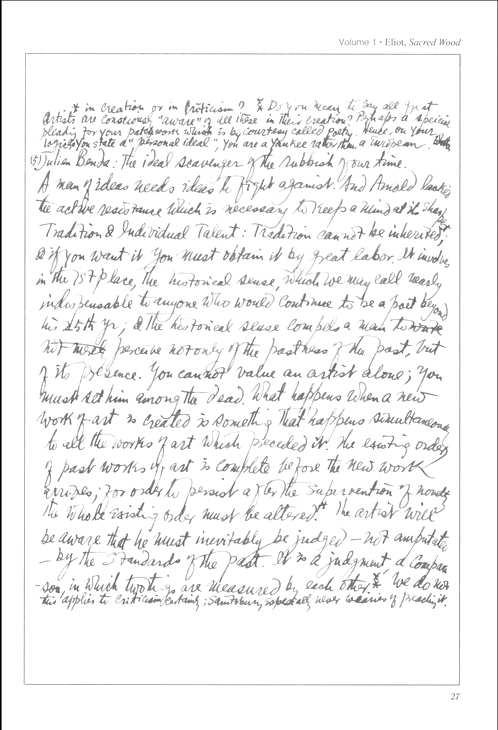 Volume 1 • Eliot, Sacred Wood
* in creation or in Criticism? ** Do you mean to say all great
artists are consciously "aware" of all these in their creation? Perhaps a special
pleading for your patchwork which is by courtesy called Poetry. Hence, on your
you state a "personal ideal", you are a Yankee rather than a European.
(5) Julien Benda: The ideal scavenger of the rubbish of our time.
A man of ideas needs ideas to fight against. And Arnold lacked
the active resistance which is necessary to keep a mind at its sharpest.
Tradition & Individual Talent: Tradition cannot be inherited,
& if you want it you must obtain it by great labor. It involves,
in the 1st place, the historical sense, which we may call nearly
indispensable to anyone who would continue to be a poet beyond
his 25th yr; & the historical sense compels a man to work
not merel perceive not only of the pastness of the past, but
of its presence. You cannot value an artist alone; you
must set him among the dead. What happens when a new
work of art is created is something that happens simultaneously
to all the works of art which preceded it. The existing order
of past works of art is complete before the new work
arrives; for order to persist after the supervention of novelty
the whole existing order must be altered.* The artist will
be aware that he must inevitably be judged – not amputated
– by the standards of the past. It is a judgment, a compari
-son, in which two things are measured by each other.** We do not
this applies to criticism, certainly; Saintsbury, especially never wearies of preaching it.
27